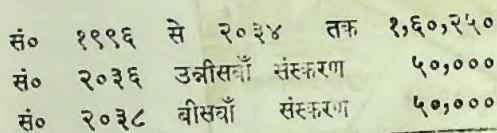 सं० १९९६ से २०३४ तक १,६०,२५०
सं० २०३६ उन्नीसवाँ संस्करण ५०,०००
सं० २०३८ बीसवाँ संस्करण ५०,०००